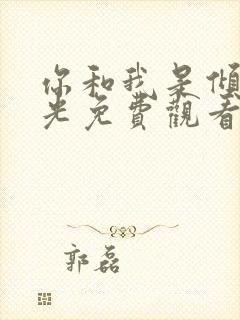 你和我是傾
光免費觀看
郭磊